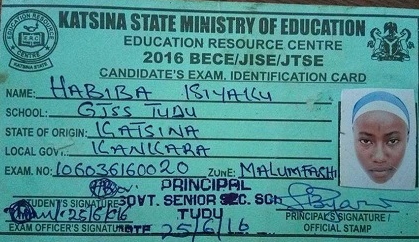 KATSINA STATE MINISTRY OF EDUCATION
EDUCATION RESOURCE CENTRE
2016 BECE/JISE/JTSE
CANDIDATE'S EXAM. IDENTIFICATION CARD
KATSINA STATE
NAME: HABIBA ISIYAKU
SCHOOL: GJSS TUDU
STATE OF ORIGIN: KATSINA
LOCAL GOVT. KANKARA
EXAM. NO: 106036160020 ZONE: MALUMFASHI
PRINCIPAL
GOVT. SENIOR SEC. SCH
TUDU
STUDENT'S SIGNATURE
25/6/16
EXAM OFFICER'S SIGNATURE
25/6/16
PRINCIPAL'S SIGNATURE/
OFFICIAL STAMP